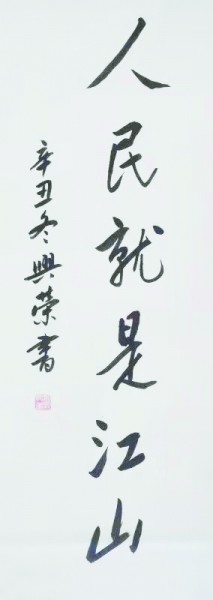 人民就是江山
辛丑冬興荣書